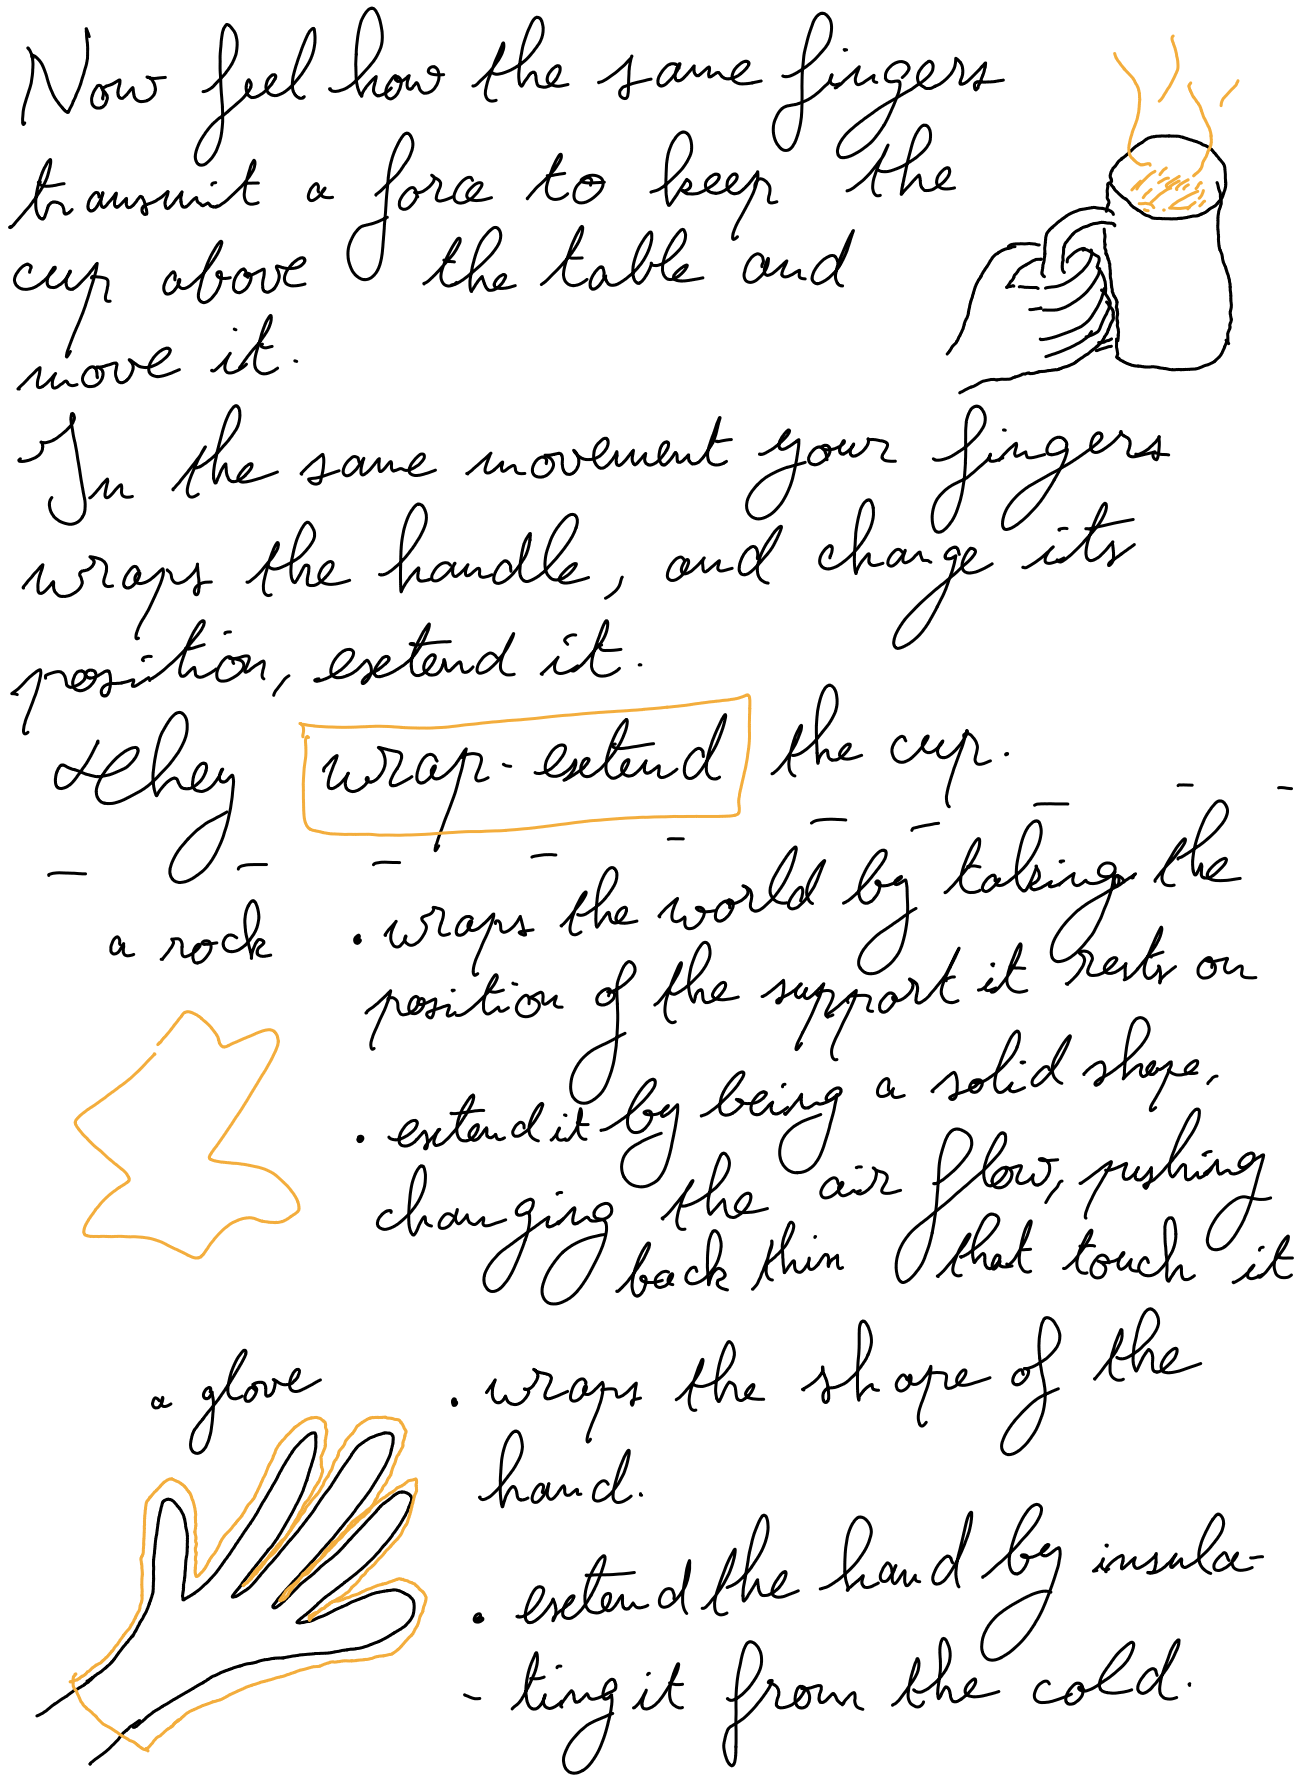 Now feel how the same fingers
transmit a force to keep the
cup above the table and
move it.
In the same movement your fingers
wraps the handle, and change its
position, extend it.
They wrap-extend the cup.
a rock
• wraps the world by taking the
position of the support it rests on
• extend it by being a solid shape,
changing the air flow, pushing
back thin that touch it
a glove
• wraps the shape of the
hand.
• extend the hand by insula-
- ting it from the cold.